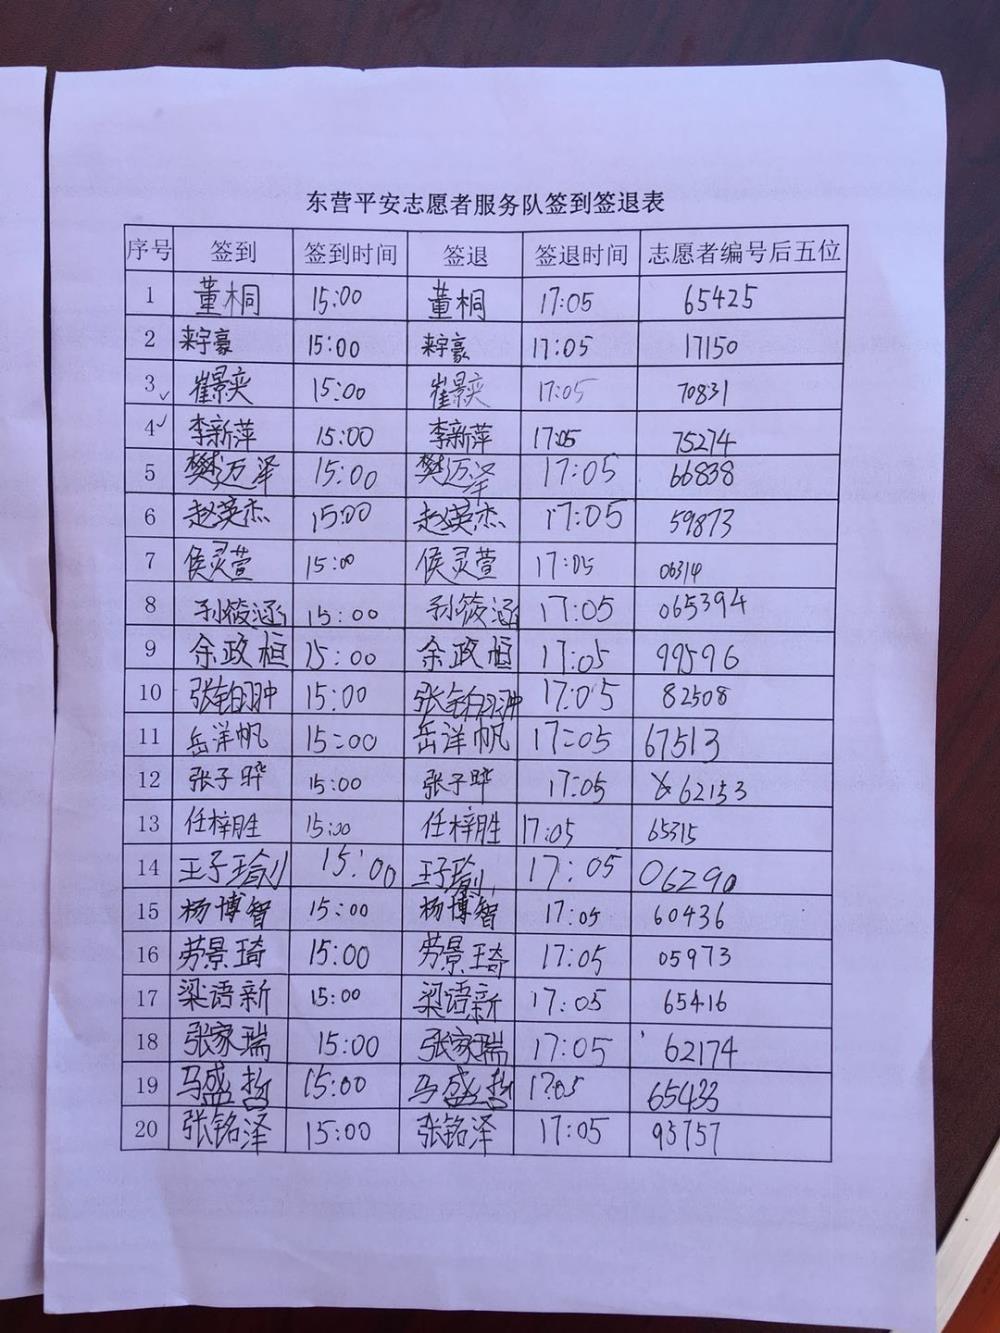 东营平安志愿者服务队签到签退表
序号 签到 签到时间 签退 签退时间 志愿者编号后五位
1 董桐 15:00 董桐 17:05 65425
2 宇豪 15:00 宇豪 17:05 17150
3 崔景奕 15:00 崔景奕 17:05 70831
4 李新萍 15:00 李新萍 17:05 75274
5 樊迈泽 15:00 樊迈泽 17:05 66838
6 赵英杰 15:00 赵英杰 17:05 59873
7 侯灵萱 15:00 侯灵萱 17:05 06314
8 孙筱涵 15:00 孙筱涵 17:05 065394
9 余政桓 15:00 余政桓 17:05 99596
10 张铂翀 15:00 张铂翀 17:05 82508
11 岳洋帆 15:00 岳洋帆 17:05 67513
12 张子晔 15:00 张子晔 17:05 62153
13 任梓胜 15:00 任梓胜 17:05 65315
14 王子瑜 15:00 王子瑜 17:05 06290
15 杨博智 15:00 杨博智 17:05 60436
16 劳景琦 15:00 劳景琦 17:05 05973
17 梁语新 15:00 梁语新 17:05 65416
18 张家瑞 15:00 张家瑞 17:05 62174
19 马盛哲 15:00 马盛哲 17:05 65433
20 张铭泽 15:00 张铭泽 17:05 95757